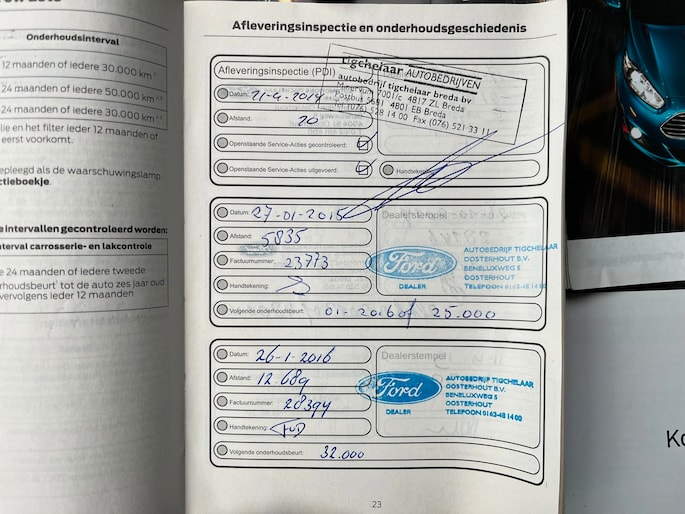 Onderhoudsinterval
12 maanden of iedere 30.000 km
24 maanden of iedere 50.000 km
24 maanden of iedere 30.000 km
lie en het filter ieder 12 maanden of
eerst voorkomt.
epleegd als de waarschuwingslamp
ctieboekje.
e intervallen gecontroleerd worden:
nterval carrosserie- en lakcontrole
e 24 maanden of iedere tweede
rhoudsbeurt tot de auto zes jaar oud
vervolgens ieder 12 maanden
Afleveringsinspectie en onderhoudsgeschiedenis
Afleveringsinspectie (PDI)
tigchelaar AUTOBEDRIJVEN
autobedrijf tigchelaar breda bv
Minervum 7001/c 4817 ZL Breda
Postbus 5681 4801 EB Breda
Tel. (076) 528 14 00 Fax (076) 521 33 11
Datum: 21-4-2014
Afstand: 20
Openstaande Service-Acties gecontroleerd:
Openstaande Service-Acties uitgevoerd:
Handtekening:
Datum: 27-01-2015
Dealerstempel
Afstand: 5835
Factuurnummer: 23773
Handtekening:
Ford
DEALER
AUTOBEDRIJF TIGCHELAAR
OOSTERHOUT B.V.
BENELUXWEG 5
OOSTERHOUT
TELEFOON 0162-48 14 00
Volgende onderhoudsbeurt: 01-2016 of 25.000
Datum: 26-1-2016
Dealerstempel
Afstand: 12.689
Factuurnummer: 28394
Handtekening:
Ford
DEALER
AUTOBEDRIJF TIGCHELAAR
OOSTERHOUT B.V.
BENELUXWEG 5
OOSTERHOUT
TELEFOON 0162-48 14 00
Volgende onderhoudsbeurt: 32.000
23
Ko